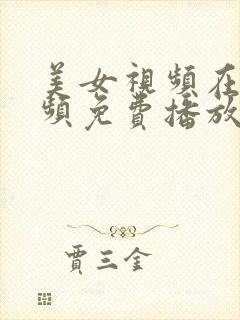 美女視頻在
頻免費播放
賈三金